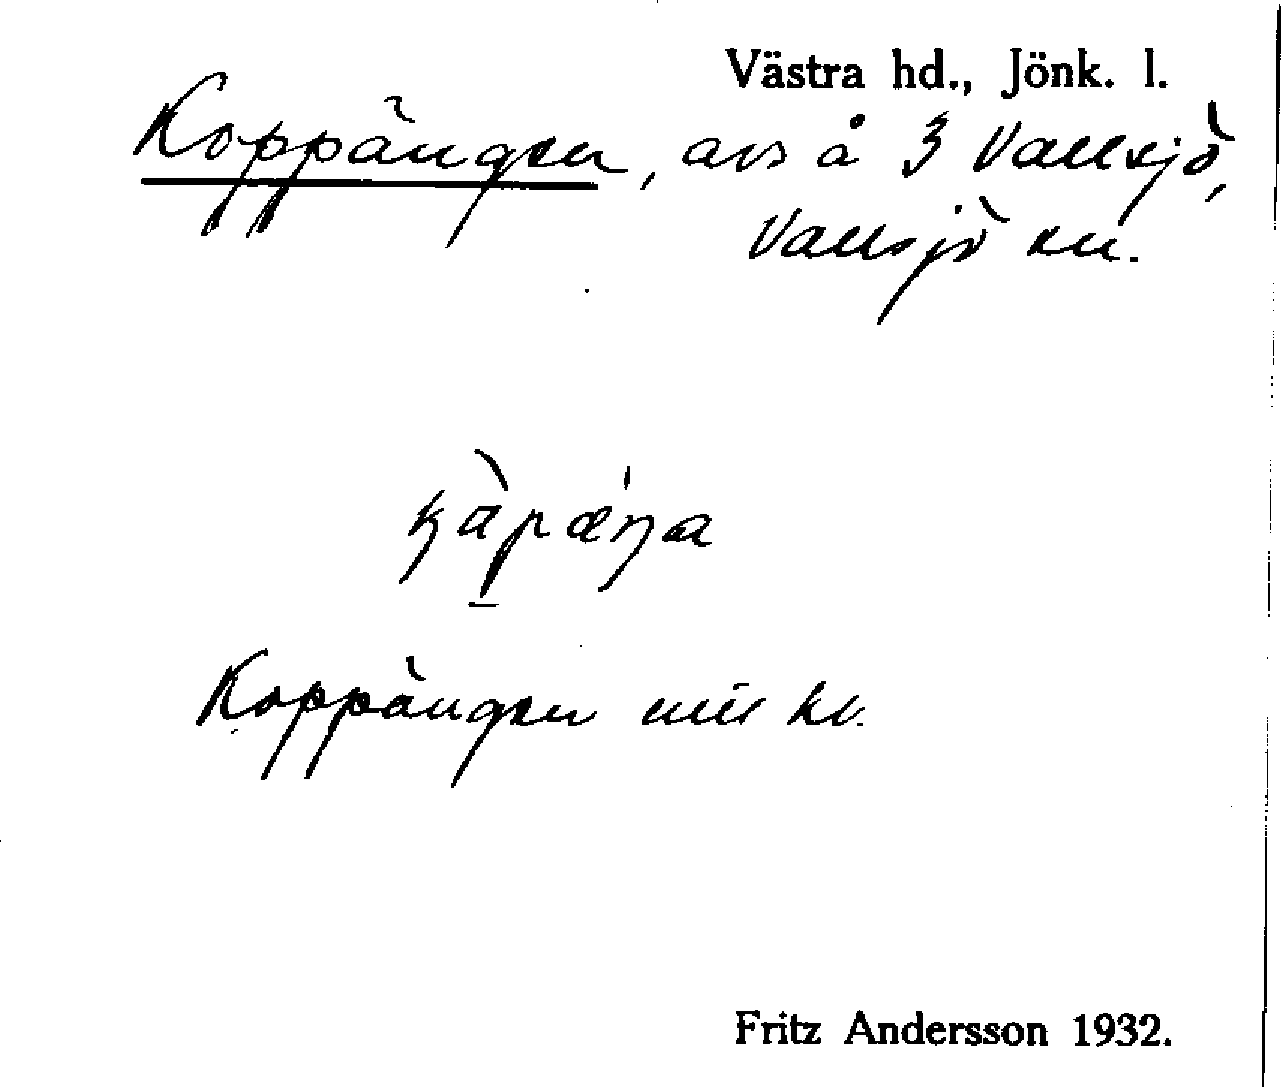 Västra hd., Jönk. l.
Koppängen, avs å 3 Vallsjö,
Vallsjö sn.
kàpæŋa
Koppängen
Fritz Andersson 1932.